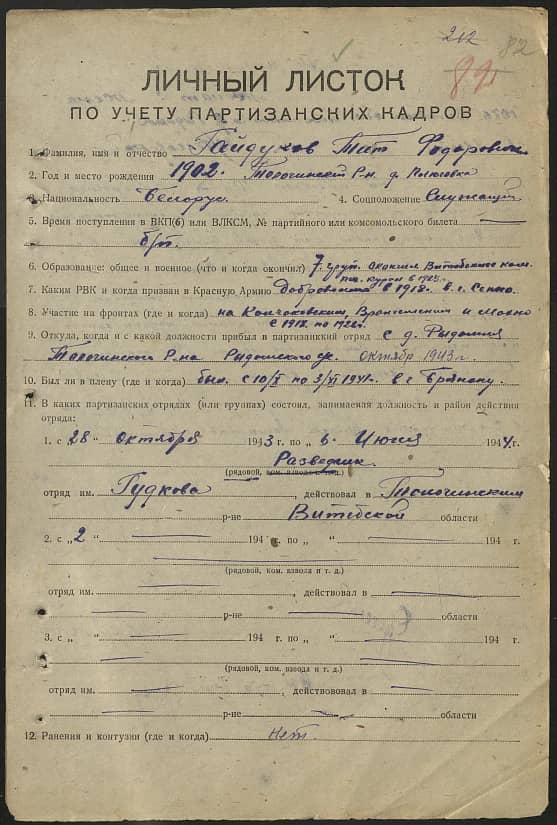 212
82
ЛИЧНЫЙ ЛИСТОК
ПО УЧЕТУ ПАРТИЗАНСКИХ КАДРОВ
1. Фамилия, имя и отчество Гайдуков Тит Федорович
2. Год и место рождения 1902. Толочинский Р-н. д.
3. Национальность Белорус. 4. Соцположение Служащий
5. Время поступления в ВКП(б) или ВЛКСМ, № партийного или комсомольского билета —
б/п.
6. Образование: общее и военное (что и когда окончил) 7 груп. окончил Витебские ком.
курсы в 1923г.
7. Каким РВК и когда призван в Красную Армию добровольно в 1918г. в г. Сенно.
8. Участие на фронтах (где и когда) на Колчаковским, Врангелевским и
с 1918 по 1922г.
9. Откуда, когда и с какой должности прибыл в партизанкий отряд с д. Рыдомля
Толочинского Р-на Рыдомльского с/с. октябрь 1943г.
10. Был ли в плену (где и когда) был. с 10/X по 3/XI 1941г. в г Брянску.
11. В каких партизанских отрядах (или группах) состоял, занимаемая должность и район действия
отряда:
1. с „28" октября 1943 г. по „6" Июня 1944 г.
Разведчик.
(рядовой, ком. взвода и т. д.)
отряд им. Гудкова, действовал в Толочинским
р-не Витебской области
2. с „2 " 194 г. по „ " 194 г.
(рядовой, ком. взвода и т. д.)
отряд им. , действовал в
р-не области
3. с „ " 194 г. по „ " 194 г.
(рядовой, ком. взвода и т. д.)
отряд им. , действововал в
р-не области
12. Ранения и контузии (где и когда) нет.